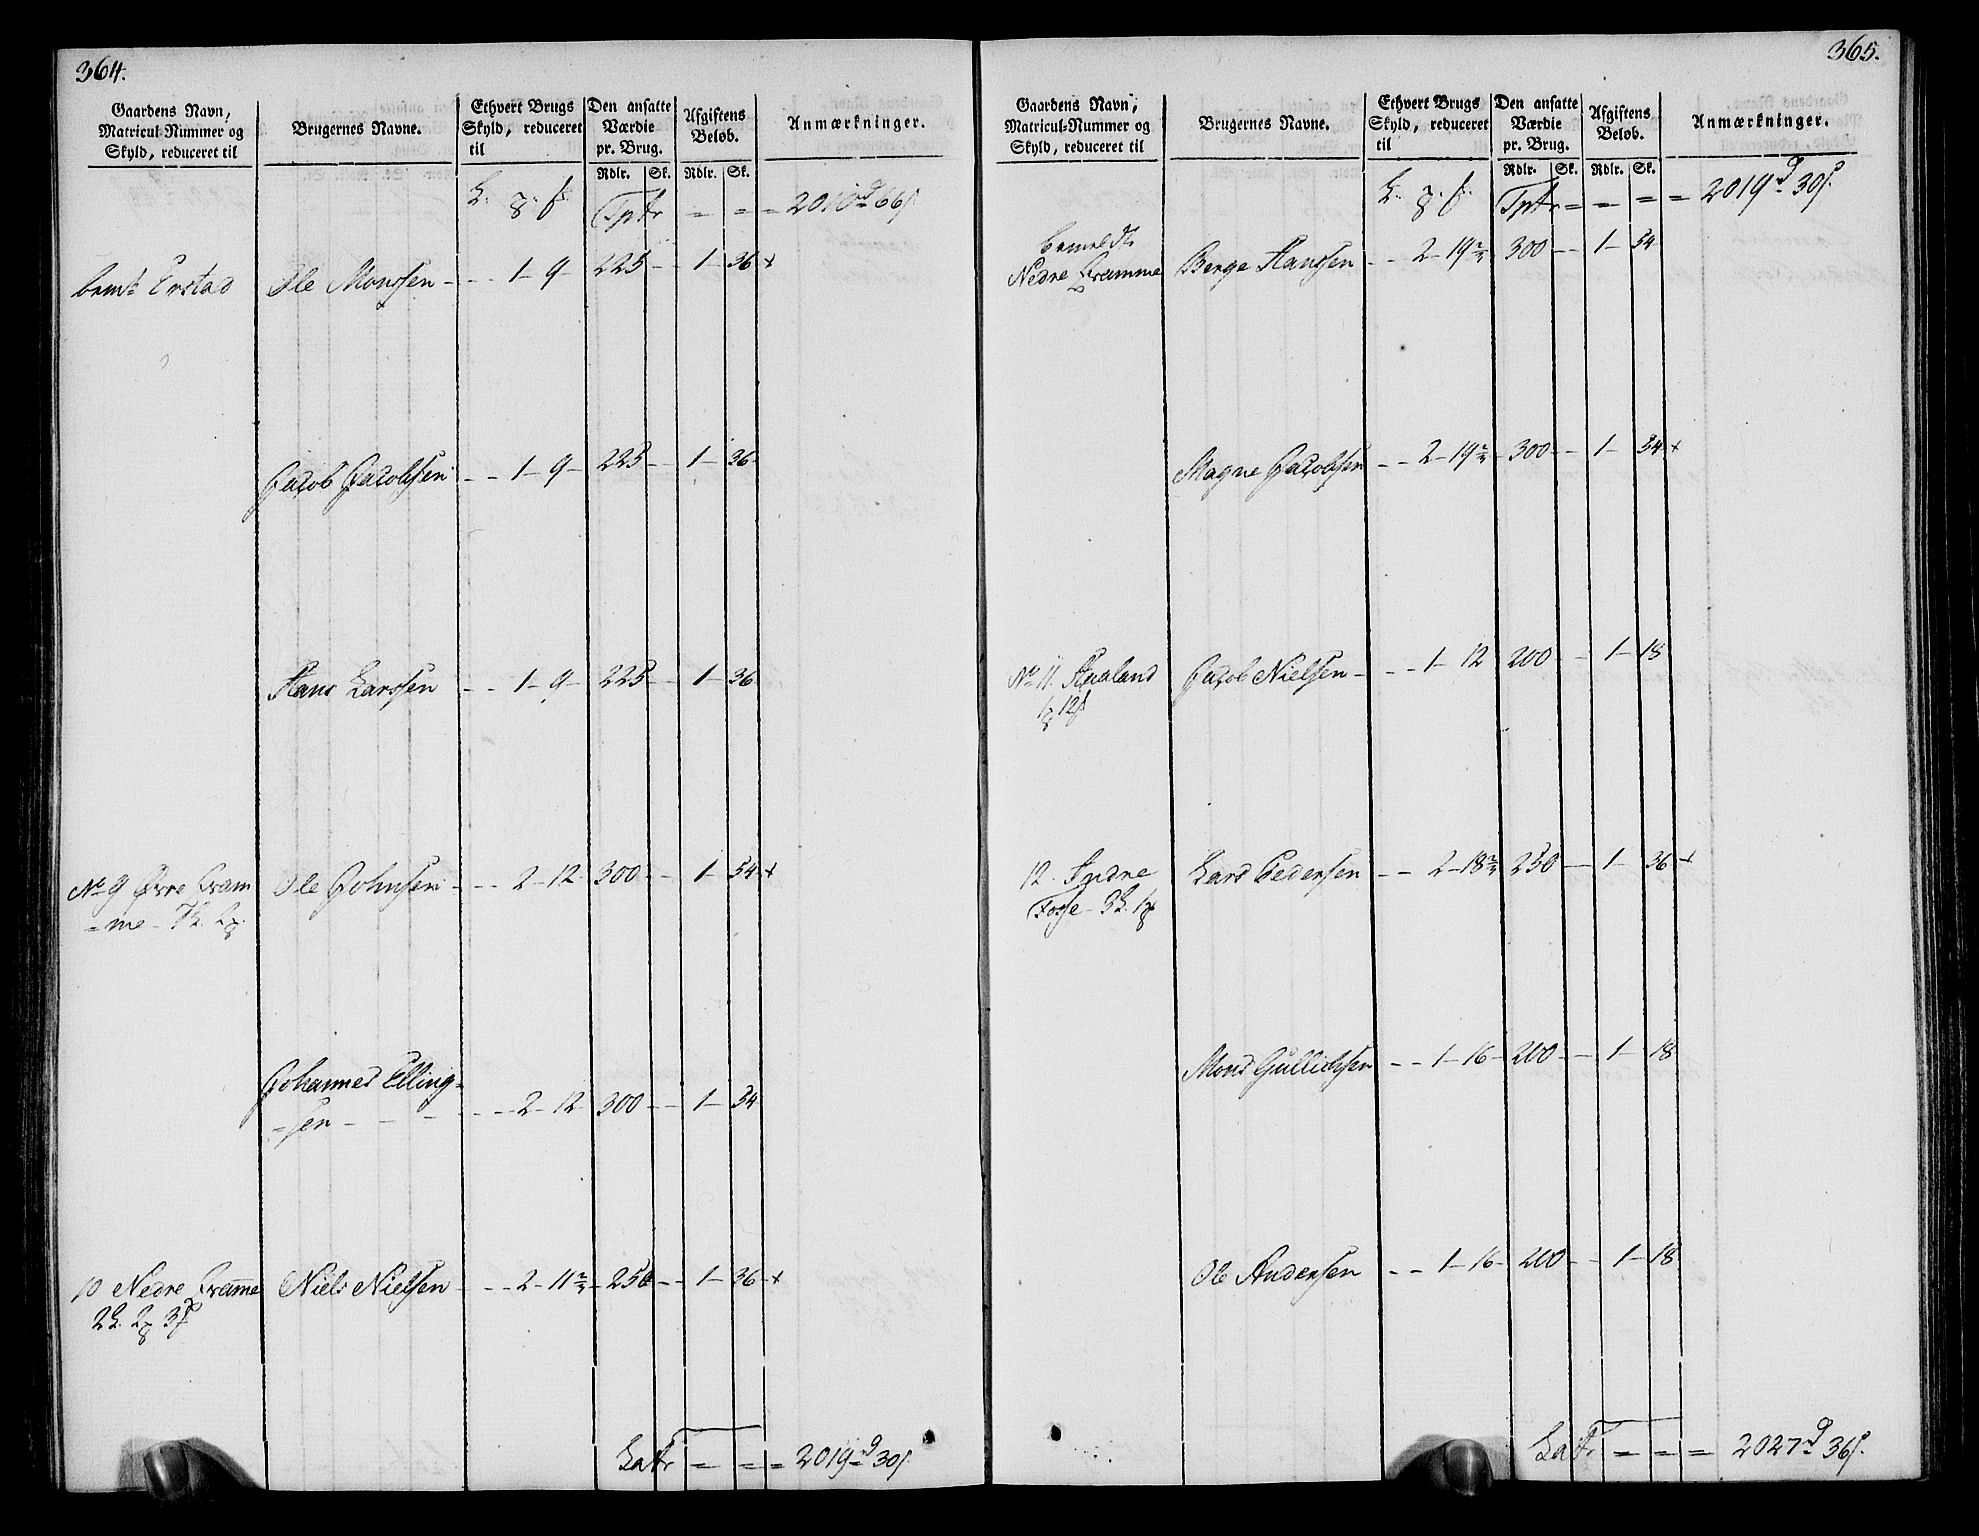 364.
Gaardens Navn, Matricul-Nummer og Skyld, reduceret til
Brugernes Navne.
Ethvert Brugs Skyld, reduceret til
Den ansatte Værdie pr. Brug.
Afgiftens Beløb.
Anmærkninger.
Rdlr. Sk. Rdlr. Sk.
Tptr = = = 2010 rd 66 s.
bem.te Erstad Ole Monssen - - - 1 - 9 - 225 - - 1 - 36 +
Jacob Jacobsen - - 1 - 9 - 225 - - 1 - 36
Hans Larssen - - 1 - 9 - 225 - - 1 - 36
No 9 Øvre Bram Ole Johnsen - - - 2 - 12 300 - - 1 - 54 +
= me -
Johannes Elling=
=sen - - - - - - 2 - 12 300 - - 1 - 54
10 Nedre Brame Niels Nielsen - - - 2 - 11 2/3 - 250 - - 1 - 36 +
Latr = = = 2019 rd 30 s.
365.
Gaardens Navn, Matricul-Nummer og Skyld, reduceret til
Brugernes Navne.
Ethvert Brugs Skyld, reduceret til
Den ansatte Værdie pr. Brug.
Afgiftens Beløb.
Anmærkninger.
Rdlr. Sk. Rdlr. Sk.
Tptr = = = = 2019 rd 30 s.
bemeldte
Nedre Bramme Berge Hanssen - - 2 - 19 2/3 300 - - 1 - 54
Magne Jacobsen - - 2 - 19 2/3 - 300 - - 1 - 54 +
No 11. Haaland Jacob Nielsen - - - 1 - 12 200 - - 1 - 18
12 - Indre Lars Pedersen - - 2 - 18 2/3 250 - - 1 - 36 +
Fosse -
Mons Gullichsen - - 1 - 16 - 200 - - 1 - 18
Ole Andersen - - 1 - 16 - 200 - - 1 - 18
Latr = = = 2027 rd 36 s.